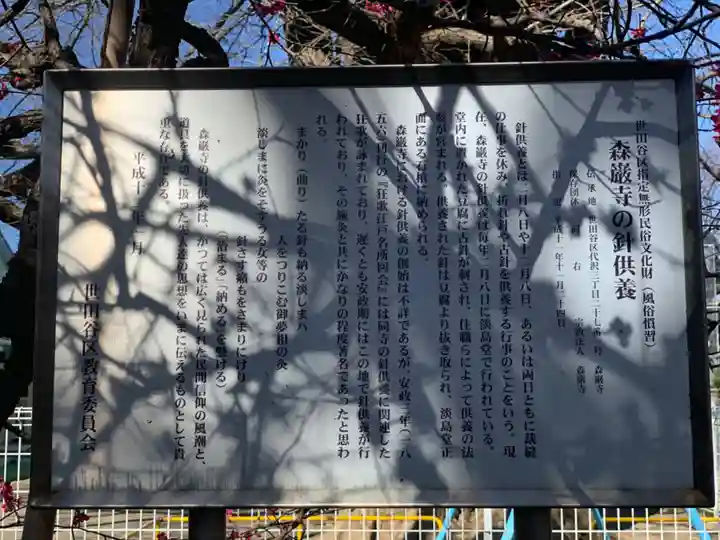 世田谷区指定無形民俗文化財（風俗慣習）
森巌寺の針供養
伝承地 世田谷区代沢三丁目二十七番 号 森巌寺
保存団体 同右 宗教法人 森巌寺
指 平成十一年十一月二十四日
針供養とは二月八日や十二月八日、あるいは両日ともに裁縫
の仕事を休み、折れ針や古針を供養する行事のことをいう。現
在、森巌寺の針供養は毎年二月八日に淡島堂で行われている。
堂内に置かれた豆腐に古針が刺され、住職らによって供養の法
要が営まれる。供養された針は豆腐より抜き取られ、淡島堂正
面にある針塚に納められる。
森巌寺における針供養の創始は不詳であるが、安政三年（一八
五六）刊行の『狂歌江戸名所図会』には同寺の針供養に関連した
狂歌が詠まれており、遅くとも安政期にはこの地で針供養が行
われており、その施灸と共にかなりの程度著名であったと思わ
れる。
まかり（曲り）たる針も納る淡しまハ
人をつりこむ御夢想の灸
淡しまに灸をそすうる女等の
針さす痛もをさまりにけり
（「治まる」「納める」を懸ける）
森巌寺の針供養は、かつては広く見られた民間信仰の風潮と、
道具を大切に扱った先人達の思想をいまに伝えるものとして貴
重な存在である。
平成十 年 月
世田谷区教育委員会